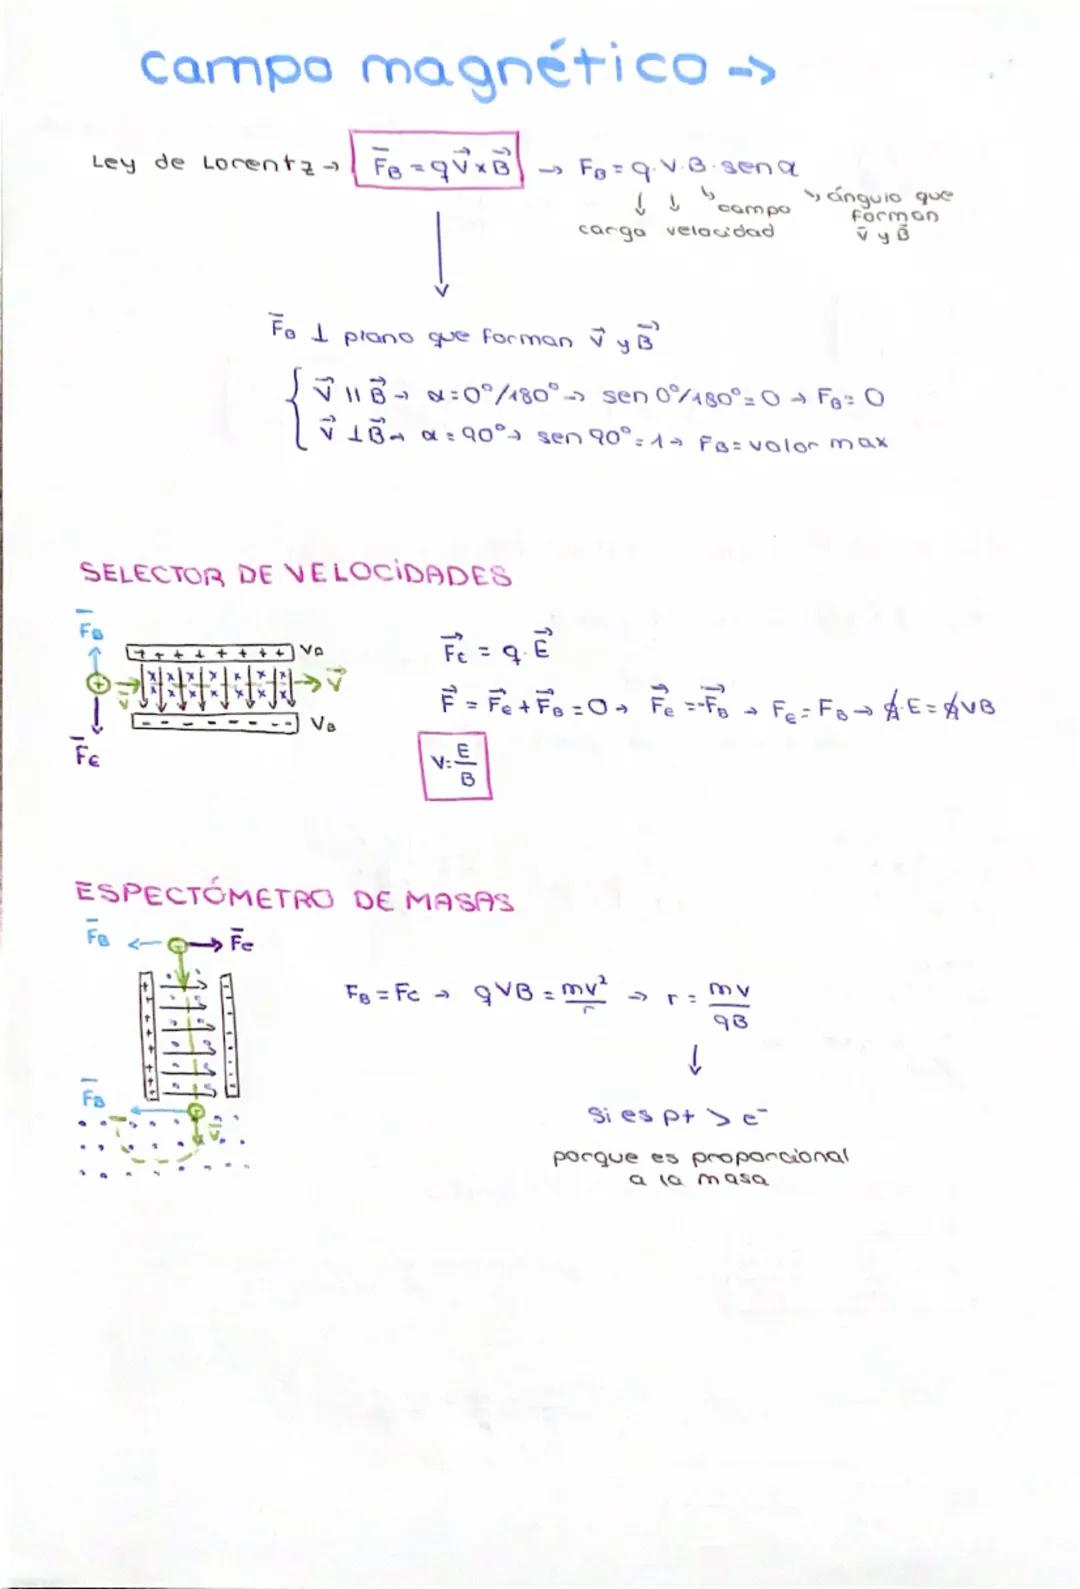 campo magnético →
Ley de Lorentz → F⃗B = q v⃗ x B⃗ → FB = q · v · B · sen α
carga velocidad campo ángulo que forman v⃗ y B⃗
F⃗B ⊥ plano que forman v⃗ y B⃗
v⃗ || B⃗ → α = 0°/180° → sen 0°/180° = 0 → FB = 0
v⃗ ⊥ B⃗ → α = 90° → sen 90° = 1 → FB = valor max
SELECTOR DE VELOCIDADES
F⃗B
+ + + + + + + + VA
F⃗e = q · E⃗
+ v⃗ x x x x x x x v⃗
x x x x x x x
F⃗ = F⃗e + F⃗B = 0 → F⃗e = -F⃗B → Fe = FB → q · E = q v B
- - - - - - - VB
F⃗e
v = E/B
ESPECTÓMETRO DE MASAS
F⃗B F⃗e
FB = Fc → q v B = mv²/r → r = mv/qB
F⃗B
v⃗
Si es p+ > e⁻
porque es proporcional
a la masa